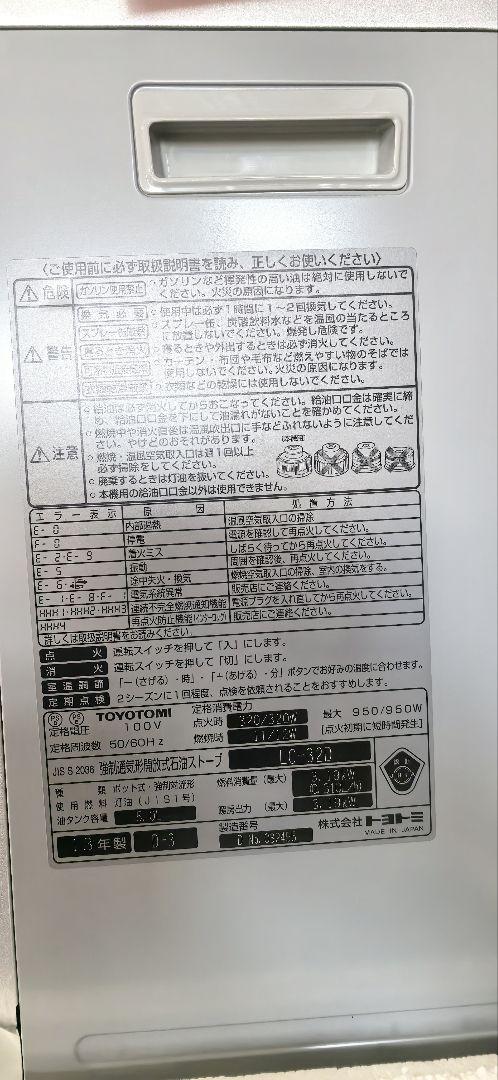 〈ご使用前に必ず取扱説明書を読み、正しくお使いください〉
危険 ガソリン使用禁止 ○ガソリンなど揮発性の高い油は絶対に使用しないで
ください。火災の原因になります。
警告
換気必要 ○使用中は必ず1時間に1〜2回換気してください。
○スプレー缶、炭酸飲料水などを温風の当たるところ
に放置しないでください。爆発し危険です。
○寝るときや外出するときは必ず消火してください。
○カーテン・布団や毛布など燃えやすい物のそばでは
使用しないでください。火災の原因になります。
○衣類などの乾燥には使用しないでください。
注意
○給油は必ず消火してからおこなってください。給油口口金は確実に締
め、給油口口金を下にして油漏れがないことを確かめてください。
○燃焼中や消火直後は温風吹出口に手などふれないように注意してくだ
さい。やけどのおそれがあります。
○燃焼・温風空気取入口は週1回以上
必ず掃除をしてください。
○廃棄するときは灯油を抜いてください。
○本機用の給油口口金以外は使用できません。
エラー表示 原因 処置方法
E-0 内部過熱 温風空気取入口の掃除
停電 電源を確認して再点火してください。
E-2・E-9 着火ミス しばらく待ってから再点火してください。
E-5 振動 周囲を確認後、再点火してください。
E-6 途中失火・換気 燃焼空気取入口の掃除、室内の換気をする。
電気系統異常 販売店にご連絡ください。
HHH1・HHH2・HHH3 連続不完全燃焼通知機能 電源プラグを入れ直してから再点火してください。
HHH4 再点火防止機能(インターロック) 販売店にご連絡ください。
詳しくは取扱説明書をお読みください。
点火 運転スイッチを押して「入」にします。
消火 運転スイッチを押して「切」にします。
室温調節 「−(さげる)・時」・「+(あげる)・分」ボタンでお好みの温度に合わせます。
定期点検 2シーズンに1回程度、点検を依頼されることをおすすめします。
TOYOTOMI
定格電圧 100V
定格周波数 50/60Hz
定格消費電力
点火時 320/320W 最大 950/950W
燃焼時 [点火初期に短時間発生]
JIS S 2036 強制通気形開放式石油ストーブ LC-32D
種類 ポット式・強制対流形
使用燃料 灯油(JIS1号)
油タンク容量
燃料消費量(最大)
暖房出力(最大)
13年製 D-3
製造番号
株式会社トヨトミ
MADE IN JAPAN